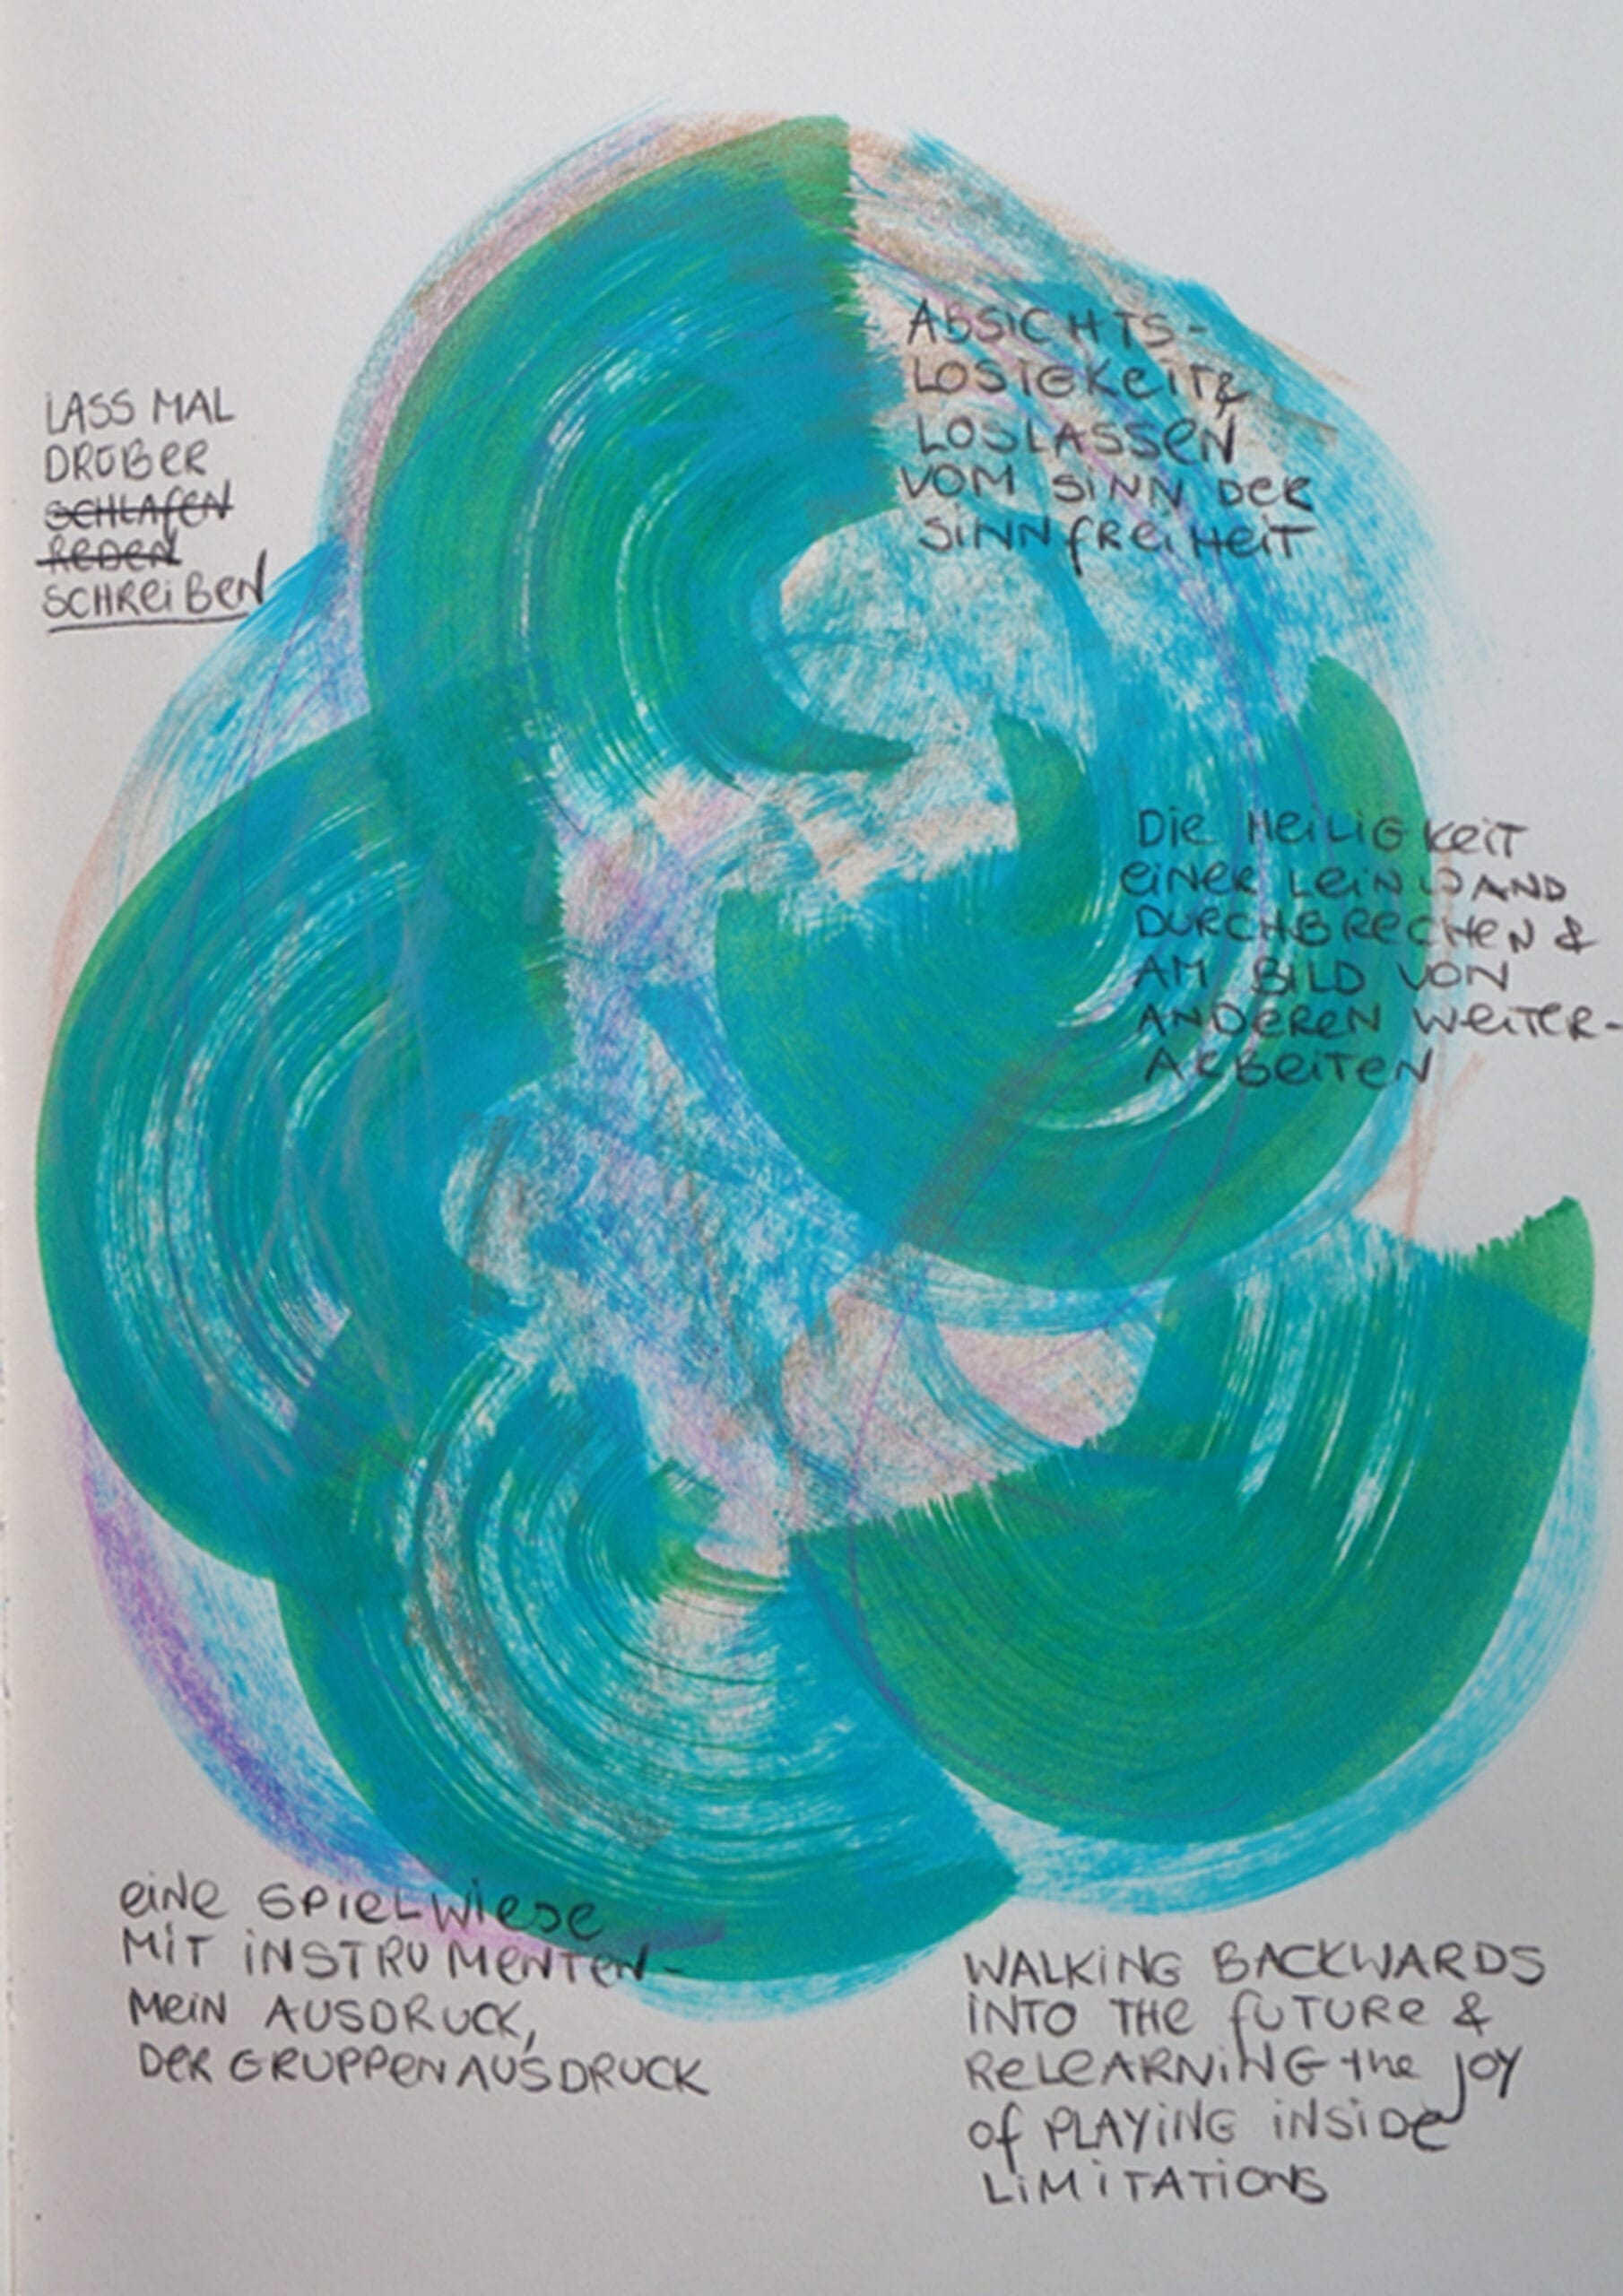 LASS MAL
DRÜBER
SCHLAFEN
REDEN
SCHREIBEN
ABSICHTS-
LOSIGKEIT &
LOSLASSEN
VOM SINN DER
SINNFREIHEIT
DIE HEILIGKEIT
EINER LEINWAND
DURCHBRECHEN &
AM BILD VON
ANDEREN WEITER-
ARBEITEN
EINE SPIELWIESE
MIT INSTRUMENTEN-
MEIN AUSDRUCK,
DER GRUPPENAUSDRUCK
WALKING BACKWARDS
INTO THE FUTURE &
RELEARNING the JOY
of PLAYING INSIDE
LIMITATIONS